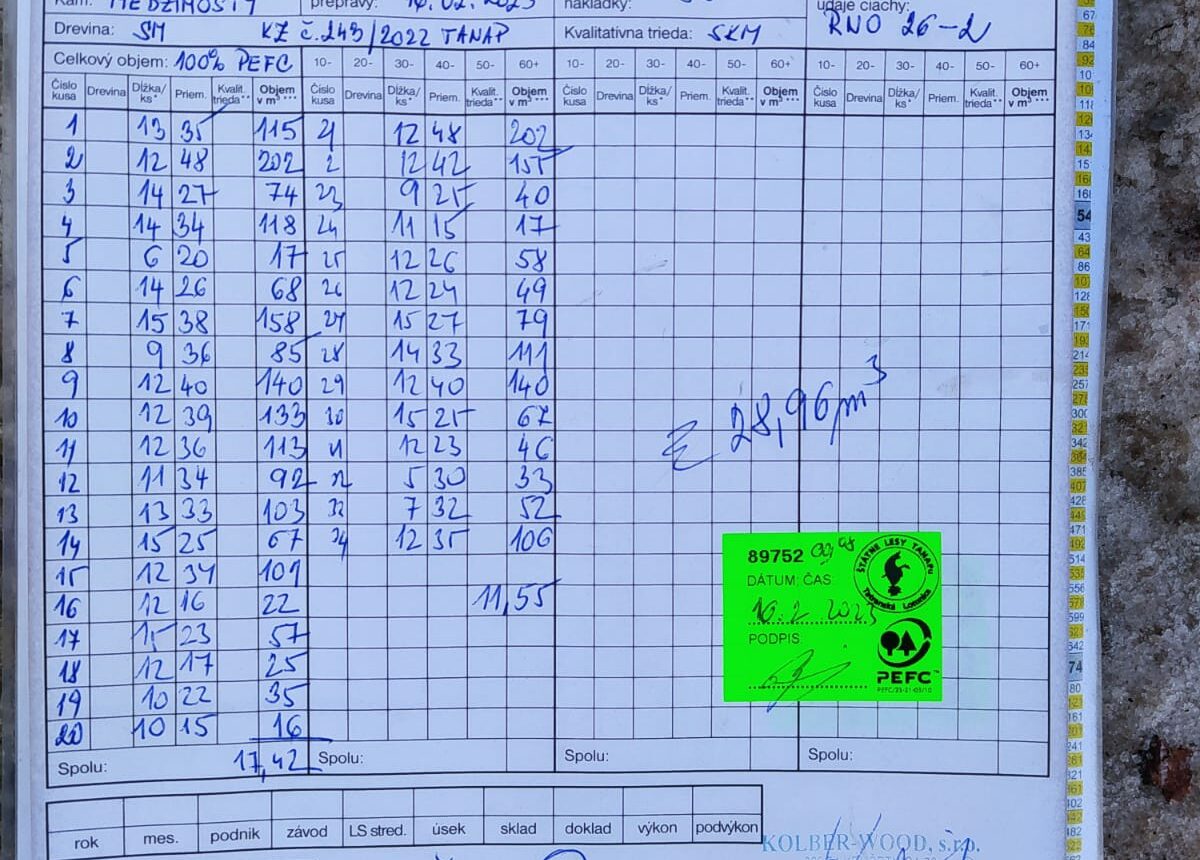 Kam: MEDZIMOSTY prepravy: nakládky: údaje ciachy:
Drevina: SM KZ č.243/2022 TANAP Kvalitatívna trieda: SKM RNO 26-2
Celkový objem: 100% PEFC 10- 20- 30- 40- 50- 60+ 10- 20- 30- 40- 50- 60+ 10- 20- 30- 40- 50- 60+
Číslo kusa Drevina Dĺžka/ks* Priem. Kvalit. trieda** Objem v m³*** Číslo kusa Drevina Dĺžka/ks* Priem. Kvalit. trieda** Objem v m³*** Číslo kusa Drevina Dĺžka/ks* Priem. Kvalit. trieda** Objem v m³*** Číslo kusa Drevina Dĺžka/ks* Priem. Kvalit. trieda** Objem v m³***
1 13 35 115 21 12 48 202
2 12 48 202 2 12 42 155
3 14 27 74 23 9 25 40
4 14 34 118 24 11 15 17
5 6 20 17 25 12 26 58
6 14 26 68 26 12 24 49
7 15 38 158 27 15 27 79
8 9 36 85 28 14 33 111
9 12 40 140 29 12 40 140
10 12 39 133 30 15 25 67
11 12 36 113 12 23 46
12 11 34 92 5 30 33
13 13 33 103 7 32 52
14 15 25 67 34 12 35 106
15 12 34 101
16 12 16 22 11,55
17 15 23 57
18 12 17 25
19 10 22 35
20 10 15 16
Spolu: 17,42 Spolu: Spolu: Spolu:
Σ 28,96 m³
89752
ŠTÁTNE LESY TANAPu
Tatranská Lomnica
DÁTUM, ČAS:
10.2 2023
PODPIS:
PEFC™
PEFC/23-21-03/10
rok mes. podnik závod LS stred. úsek sklad doklad výkon podvýkon
KOLBER-WOOD, s.r.o.